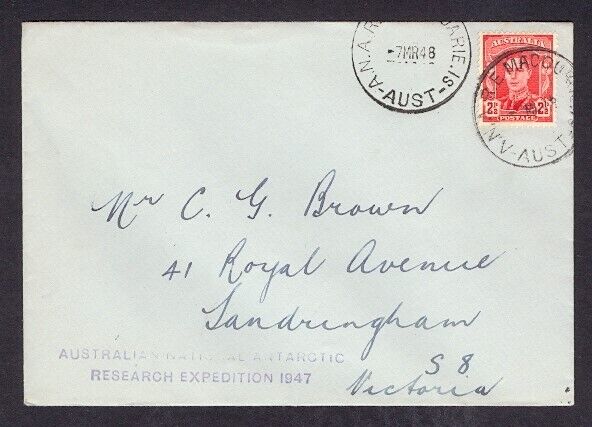 A.N.A.R. QUARIE. IS
-7MR48
AUST-
AUSTRALIA
2½D 2½D
POSTAGE
R.E. MACQU
AUST-
Mr C. G. Brown
41 Royal Avenue
Sandringham
S 8
Victoria
AUSTRALIAN NATIONAL ANTARCTIC
RESEARCH EXPEDITION 1947